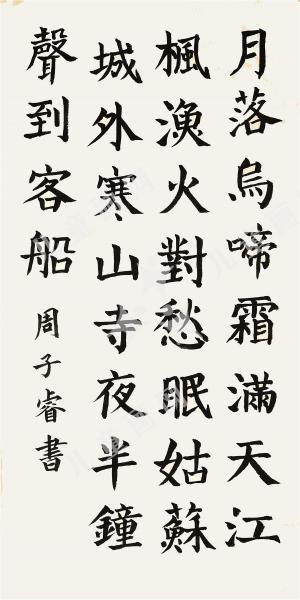 月落烏啼霜滿天江
楓漁火對愁眠姑蘇
城外寒山寺夜半鐘
聲到客船
周子睿書